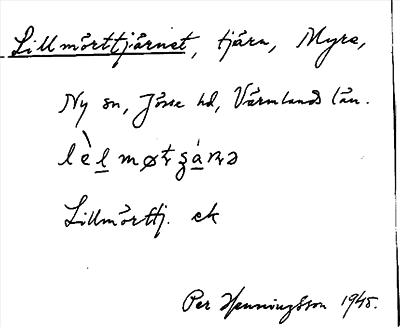 Lillmörttjärnet, tjärn, Myre,
Ny sn, Jösse hd, Värmlands län.
Lillmörttj. ek
Per Henningsson 1945.